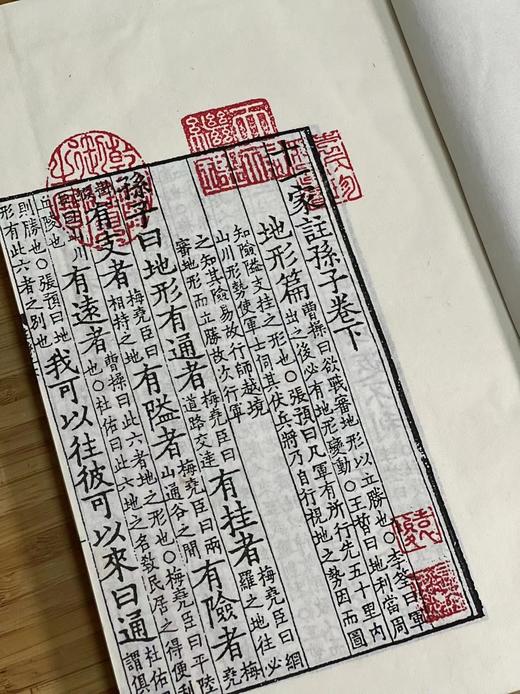 十一家註孫子卷下
地形篇
曹操曰欲戰審地形以立勝也○李筌曰軍
出之後必有地形變動○王晳曰地利當周
知險隘支挂之形也○張預曰凡軍有所行先五十里內
山川形勢使軍士伺其伏兵將乃自行視地之勢因而圖
之知其險易故行師越境
審地形而立勝故次行軍
孫子曰地形有通者
梅堯臣曰
道路交達
有挂者
梅堯臣曰網
羅之地往必
有支者
梅堯臣曰
相持之地
有隘者
梅堯臣曰兩
山通谷之間
有險者
梅
臣曰山川
丘陵也
有遠者
曹操曰此六者地之形也○梅堯臣曰平陸
也○杜佑曰此六地之名教民居之得便利
則勝也○張預曰地
形有此六者之別也
我可以往彼可以來曰通
杜佑
謂俱